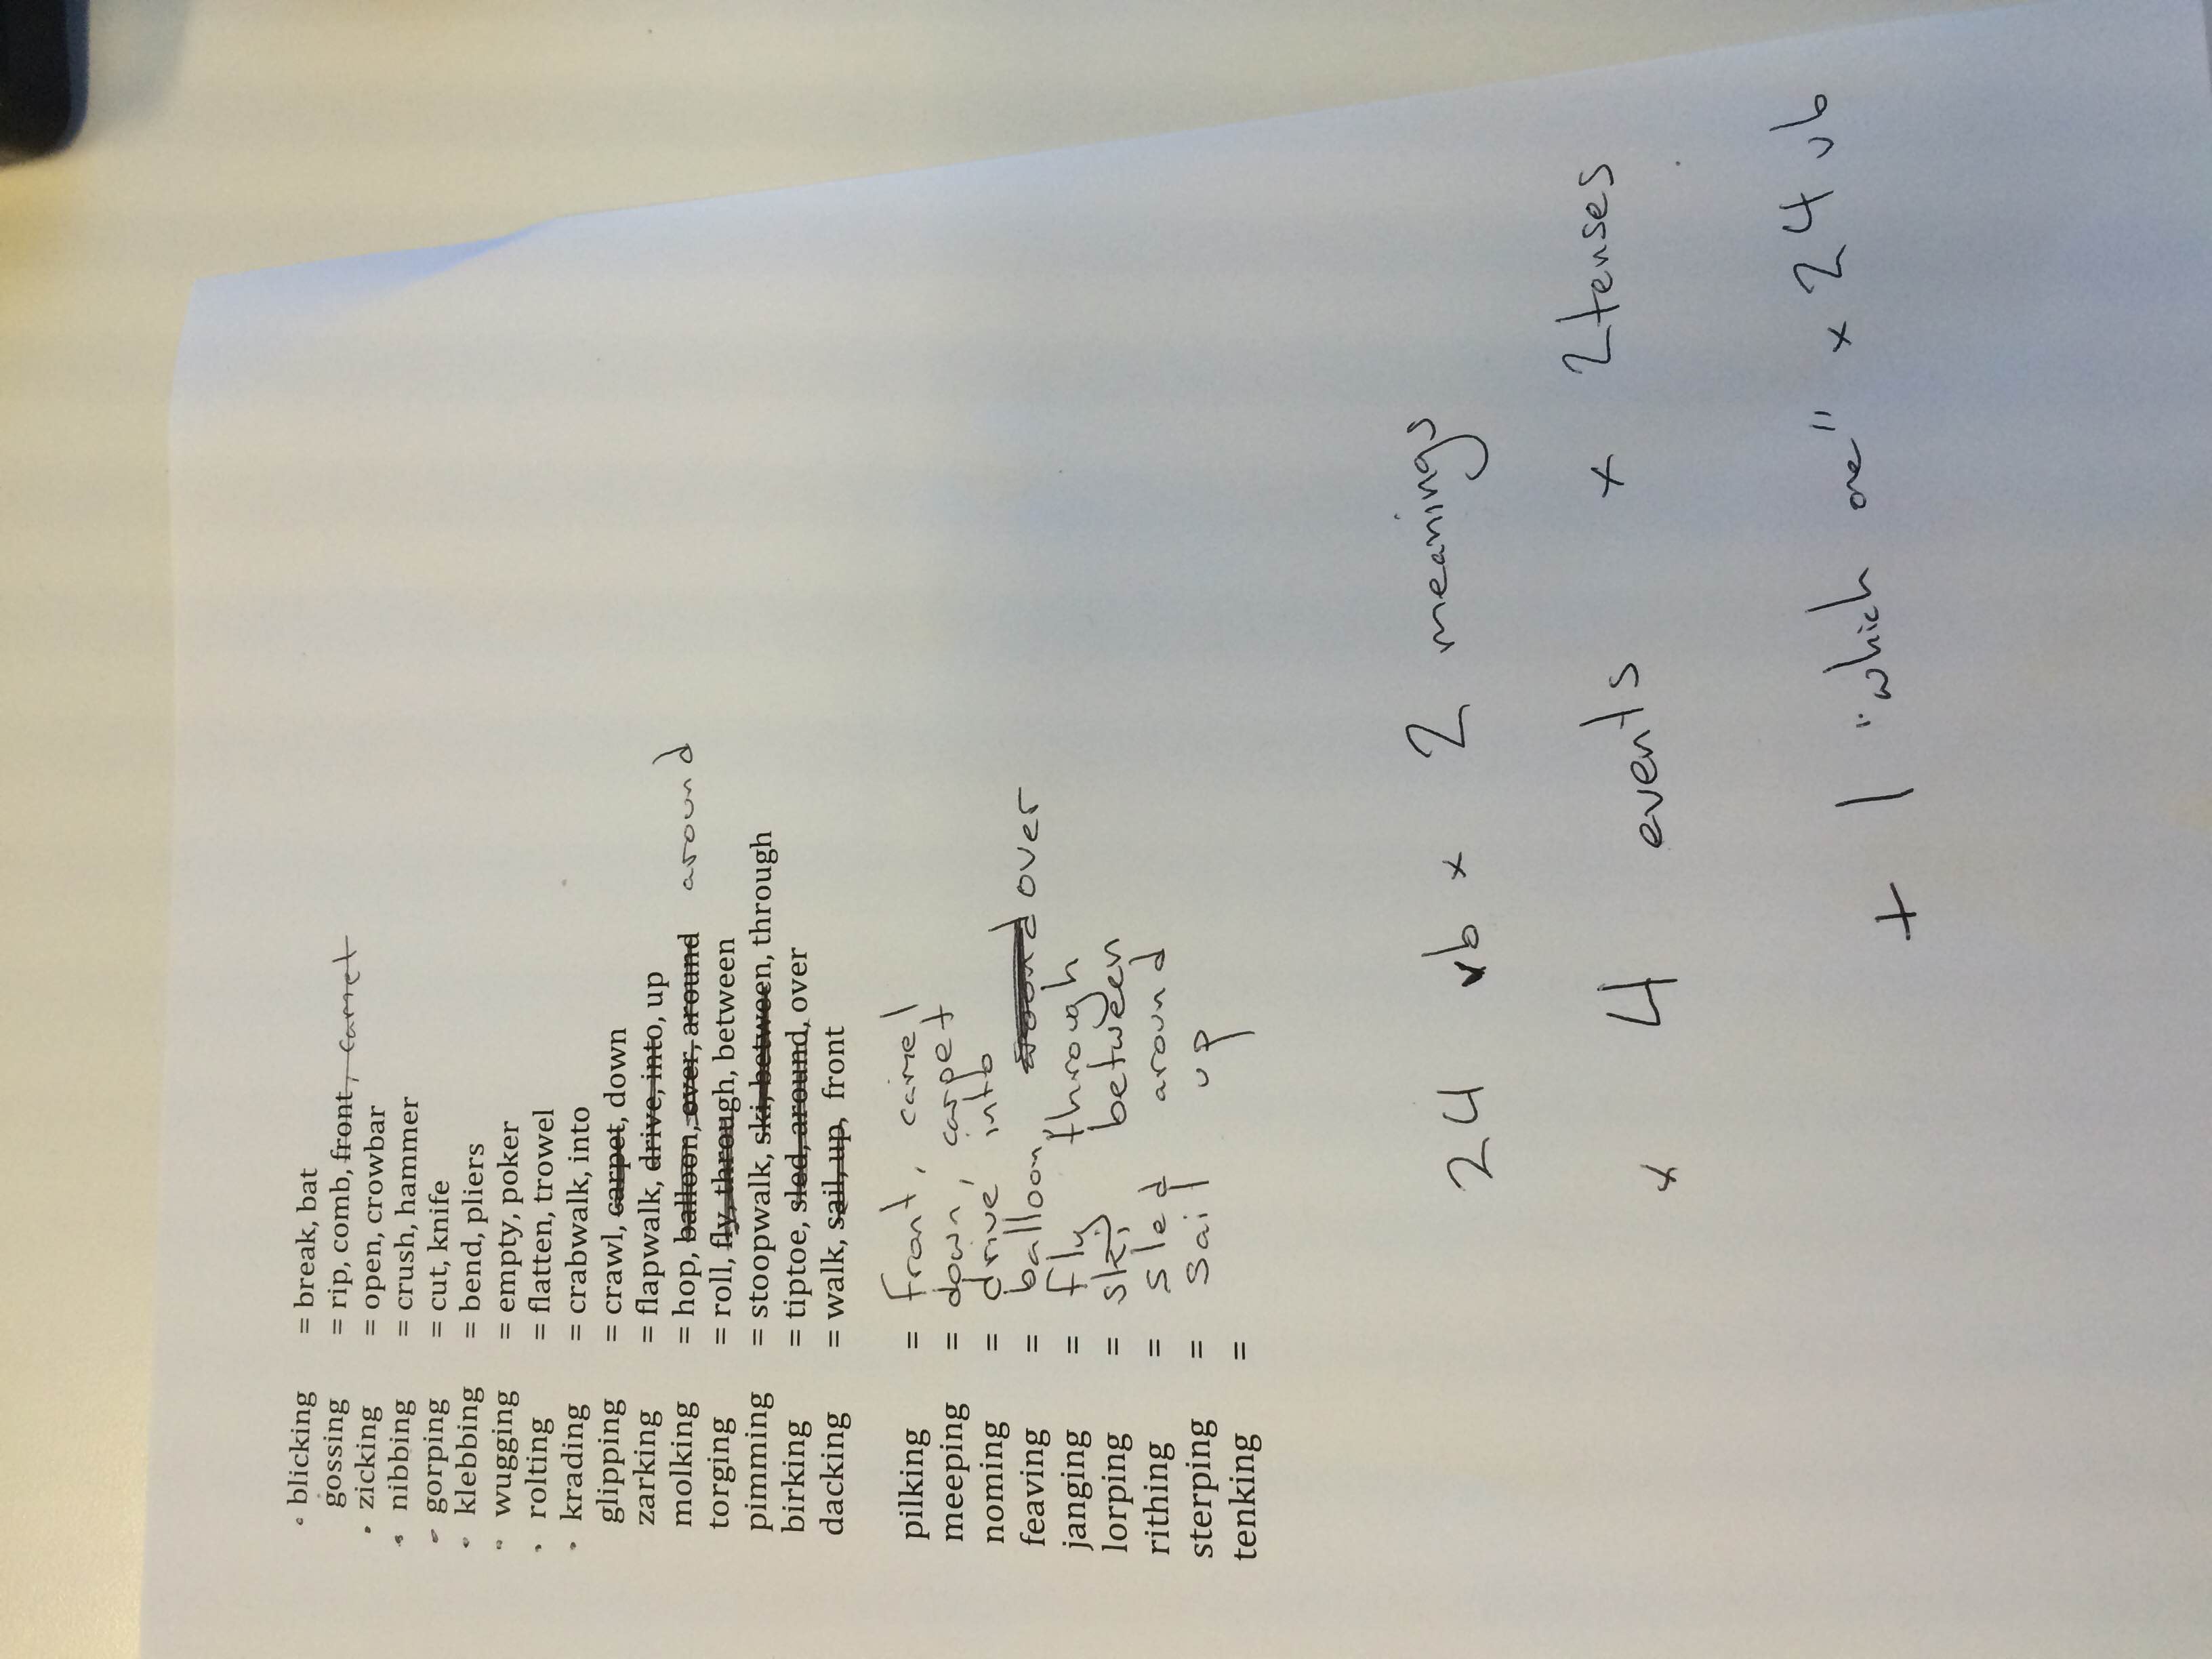 blicking = break, bat
gossing = rip, comb, front, camel
zicking = open, crowbar
nibbing = crush, hammer
gorping = cut, knife
klebbing = bend, pliers
wugging = empty, poker
rolting = flatten, trowel
krading = crabwalk, into
glipping = crawl, carpet, down
zarking = flapwalk, drive, into, up
molking = hop, balloon, over, around around
torging = roll, fly, through, between
pimming = stoopwalk, ski, between, through
birking = tiptoe, sled, around, over
dacking = walk, sail, up, front
pilking = front, camel
meeping = down, carpet
noming = drive into
feaving = balloon, over
janging = fly through
lorping = ski between
rithing = sled around
sterping = sail up
tenking =
24 vb x 2 meanings
x 4 events x 2 tenses
+ 1 "which one" x 24 vb